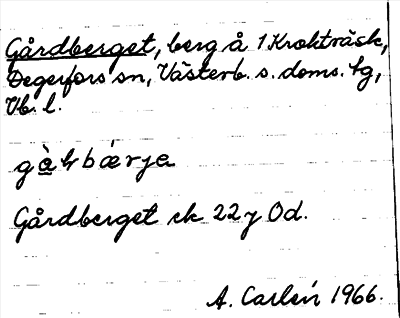 Gårdberget, berg å 1 Krokträsk,
Degerfors sn, Västerb. s. doms. tg,
Vb. l.
Gårdberget ek 22 y Od.
A. Carlén 1966.